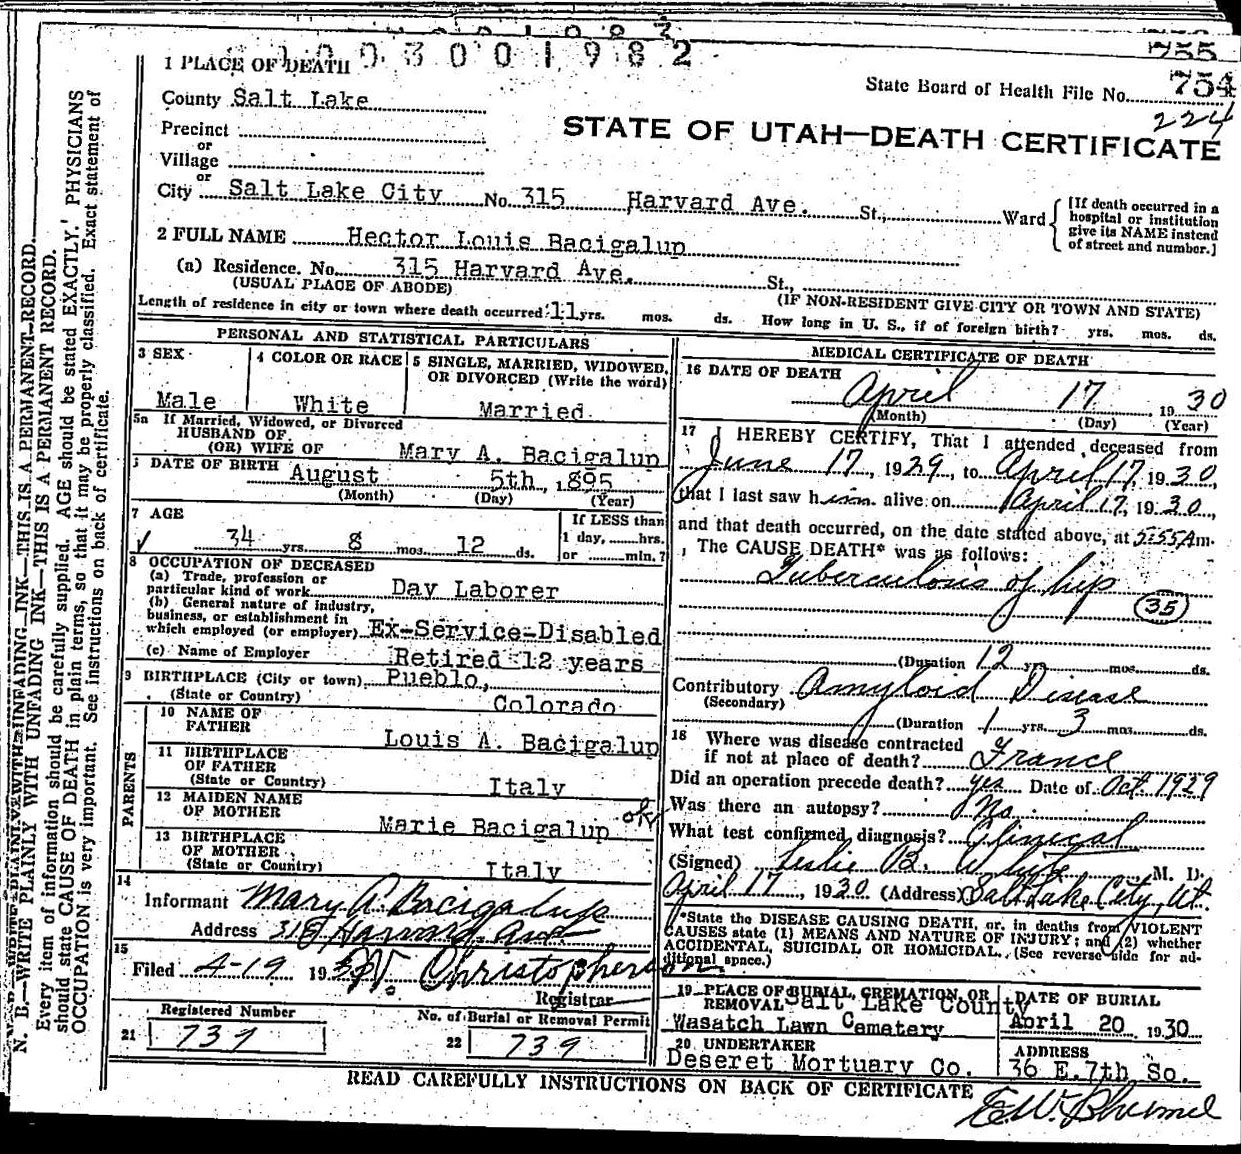 1003001982
755
1 PLACE OF DEATH
State Board of Health File No. 754
County Salt Lake
224
Precinct
STATE OF UTAH—DEATH CERTIFICATE
or
Village
or
City Salt Lake City No. 315 Harvard Ave. St., Ward
[If death occurred in a hospital or institution give its NAME instead of street and number.]
2 FULL NAME Hector Louis Bacigalup
(a) Residence. No. 315 Harvard Ave. St.,
(USUAL PLACE OF ABODE) (IF NON-RESIDENT GIVE CITY OR TOWN AND STATE)
Length of residence in city or town where death occurred 11 yrs. mos. ds. How long in U. S., if of foreign birth? yrs. mos. ds.
PERSONAL AND STATISTICAL PARTICULARS
3 SEX
Male
4 COLOR OR RACE
White
5 SINGLE, MARRIED, WIDOWED,
OR DIVORCED (Write the word)
Married
5a If Married, Widowed, or Divorced
HUSBAND OF
(OR) WIFE OF Mary A. Bacigalup
DATE OF BIRTH August 5th, 1895
(Month) (Day) (Year)
7 AGE
If LESS than
1 day, hrs.
or min.?
34 yrs. 8 mos. 12 ds.
8 OCCUPATION OF DECEASED
(a) Trade, profession or
particular kind of work Day Laborer
(b) General nature of industry,
business, or establishment in
which employed (or employer) Ex-Service-Disabled
(c) Name of Employer Retired 12 years
9 BIRTHPLACE (City or town) Pueblo,
(State or Country) Colorado
PARENTS
10 NAME OF
FATHER Louis A. Bacigalup
11 BIRTHPLACE
OF FATHER
(State or Country) Italy
12 MAIDEN NAME
OF MOTHER Marie Bacigalup ok
13 BIRTHPLACE
OF MOTHER
(State or Country) Italy
14
Informant Mary A. Bacigalup
Address 315 Harvard Ave
15
Filed 4-19 1930 Christopherson
Registrar
Registered Number
21 739
No. of Burial or Removal Permit
22 739
MEDICAL CERTIFICATE OF DEATH
16 DATE OF DEATH
April 17 1930
(Month) (Day) (Year)
17 I HEREBY CERTIFY, That I attended deceased from
June 17, 1929, to April 17, 1930,
that I last saw him alive on April 17, 1930,
and that death occurred, on the date stated above, at 5:55 Am.
The CAUSE DEATH* was as follows:
Tuberculous of hip
35
(Duration 12 yrs. mos. ds.
Contributory Amyloid Disease
(Secondary)
(Duration 1 yrs. 3 mos. ds.
18 Where was disease contracted
if not at place of death? France
Did an operation precede death? yes Date of Oct 1929
Was there an autopsy? No.
What test confirmed diagnosis? Clinical
(Signed) Leslie B. White M. D.
April 17, 1930 (Address) Salt Lake City, Ut.
*State the DISEASE CAUSING DEATH, or, in deaths from VIOLENT
CAUSES state (1) MEANS AND NATURE OF INJURY; and (2) whether
ACCIDENTAL, SUICIDAL OR HOMICIDAL. (See reverse side for ad-
ditional space.)
19 PLACE OF BURIAL, CREMATION, OR
REMOVAL Salt Lake County
Wasatch Lawn Cemetery
DATE OF BURIAL
April 20 1930
20 UNDERTAKER
Deseret Mortuary Co.
ADDRESS
36 E. 7th So.
READ CAREFULLY INSTRUCTIONS ON BACK OF CERTIFICATE
N. B.—WRITE PLAINLY WITH UNFADING INK—THIS IS A PERMANENT RECORD.
Every item of information should be carefully supplied. AGE should be stated EXACTLY. PHYSICIANS
should state CAUSE OF DEATH in plain terms, so that it may be properly classified. Exact statement of
OCCUPATION is very important. See instructions on back of certificate.